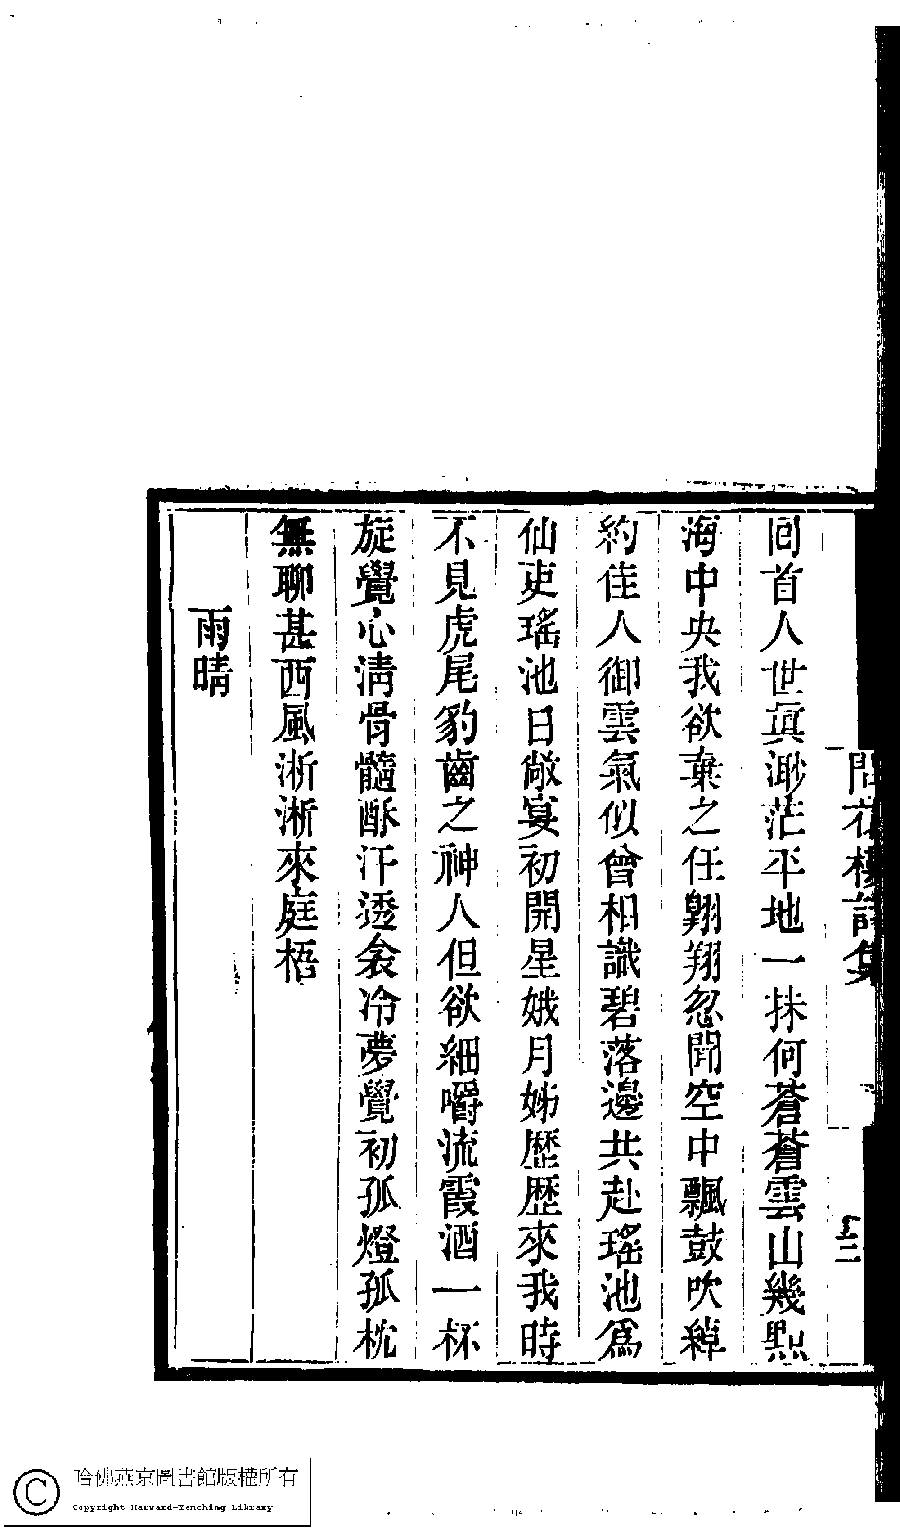 回首人世眞渺茫平地一抹何蒼蒼雲山幾點
海中央我欲棄之任翺翔忽聞空中飄鼓吹綽
約佳人御雲氣似曾相識碧落邊共赴瑤池爲
仙吏瑤池日敞宴初開星娥月姊歴歴來我時
不見虎尾豹齒之神人但欲細嚼流霞酒一杯
旋覺心淸骨髓酥汗透衾冷夢覺初孤燈孤枕
無聊甚西風淅淅來庭梧
雨晴
問花樓詩集
二
哈佛燕京圖書館版權所有
Copyright Harvard-Yenching Library